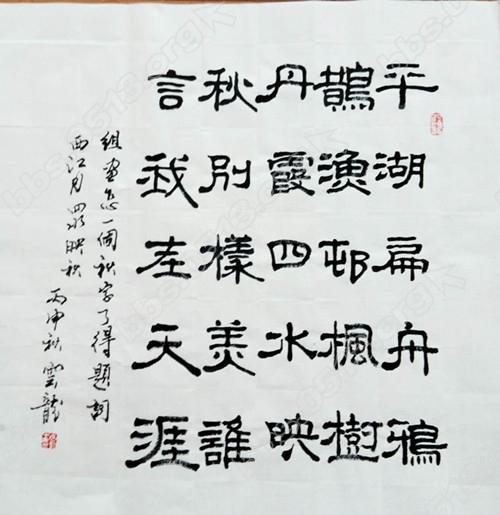 平湖扁舟鴉
鵲漁邨楓樹
丹霞四水映
秋別樣美誰
言我在天涯
組畫怎一個秋字了得題詞
西江月四水映秋 丙申秋雲龍